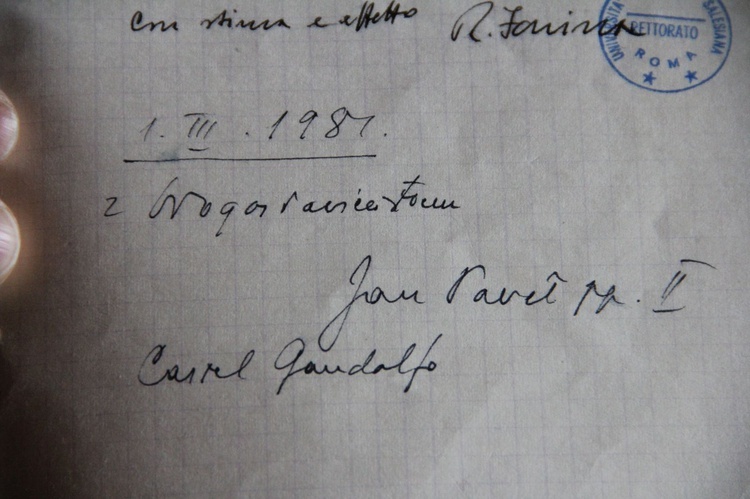 Con stima e affetto R. Farina
UNIVERSITA SALESIANA
RETTORATO
ROMA
1. III. 1981.
z Błogosławieństwem
Jan Paweł pp. II
Castel Gandolfo